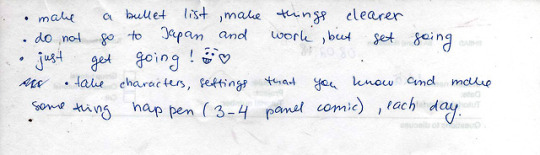 • make a bullet list, make things clearer
• do not go to Japan and work, but get going
• just get going! ♡
• take characters, settings that you know and make
some thing happen (3-4 panel comic), each day.